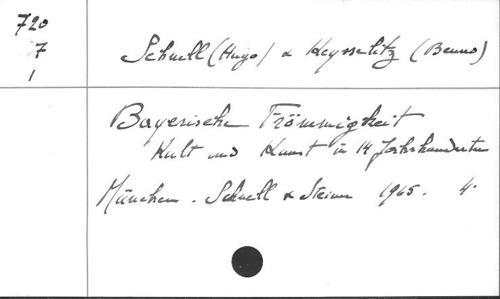 720
7
1
Schnell (Hugo) & Keysselitz (Benno)
Bayerische Frömmigkeit
Kult und Kunst in 14 Jahrhunderten
München. Schnell & Steiner 1965. 4.